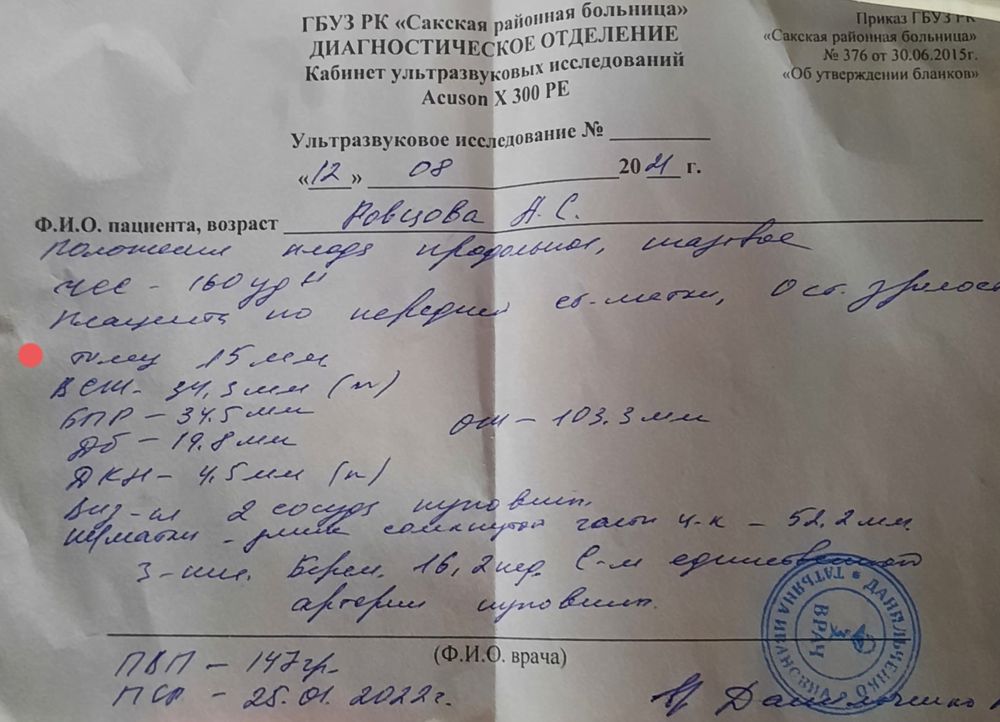 ГБУЗ РК «Сакская районная больница»
ДИАГНОСТИЧЕСКОЕ ОТДЕЛЕНИЕ
Кабинет ультразвуковых исследований
Acuson X 300 PE
Приказ ГБУЗ РК
«Сакская районная больница»
№ 376 от 30.06.2015г.
«Об утверждении бланков»
Ультразвуковое исследование №
«12» 08 2021 г.
Ф.И.О. пациента, возраст Ровцова А.С.
Положение плода продольное, тазовое
ЧСС - 160 уд
Плацента по передней ст. матки, 0 ст. зрелос
толщ 15 мм
34,3 мм (n)
БПР - 34.5 мм ОЖ - 103.3 мм
ДБ - 19.8 мм
ДКН - 4.5 мм (n)
Виз-ся 2 сосуда пуповины.
Ш/матки - длина сомкнутой части ц-к - 52.2 мм
З-ние. Берем. 16,2 нед. С-м единственной
артерии пуповины.
(Ф.И.О. врача)
ПВП - 147 гр.
ПСР - 25.01.2022г.
ДАНИЛЬЧЕНКО ТАТЬЯНА ИВАНОВНА
ВРАЧ
Вр Данильченко